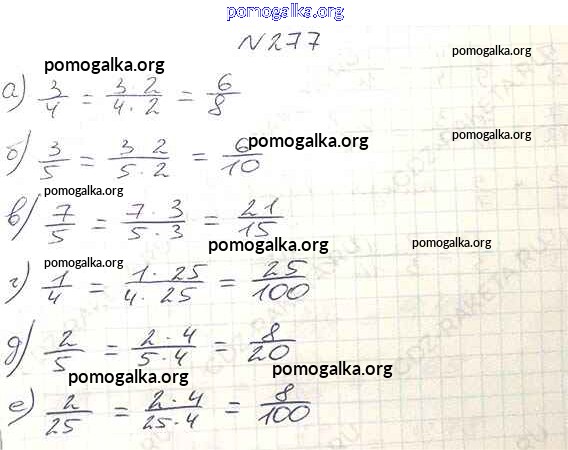 pomogalka.org
N 277
pomogalka.org
pomogalka.org
а) 3/4 = 3 2/4 · 2 = 6/8
pomogalka.org
б) 3/5 = 3 2/5 · 2 = 6/10
pomogalka.org
в) 7/5 = 7 · 3/5 · 3 = 21/15
pomogalka.org
pomogalka.org
pomogalka.org
г) 1/4 = 1 · 25/4 · 25 = 25/100
д) 2/5 = 2 · 4/5 · 4 = 8/20
pomogalka.org
pomogalka.org
е) 2/25 = 2 · 4/25 · 4 = 8/100